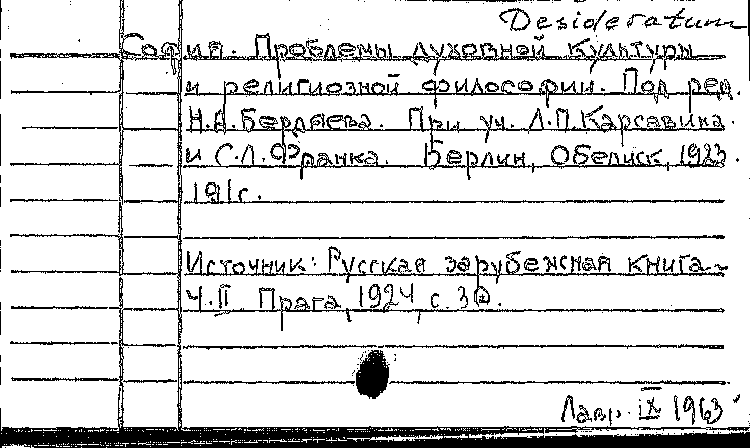 Desideratum
София. Проблемы духовной культуры
и религиозной философии. Под ред.
Н.А.Бердяева. При уч. Л.П.Карсавина
и С.Л.Франка. Берлин, Обелиск, 1923.
191с.
Источник: Русская зарубежная книга
Ч.II Прага, 1924, с.
Лавр. IX 1963